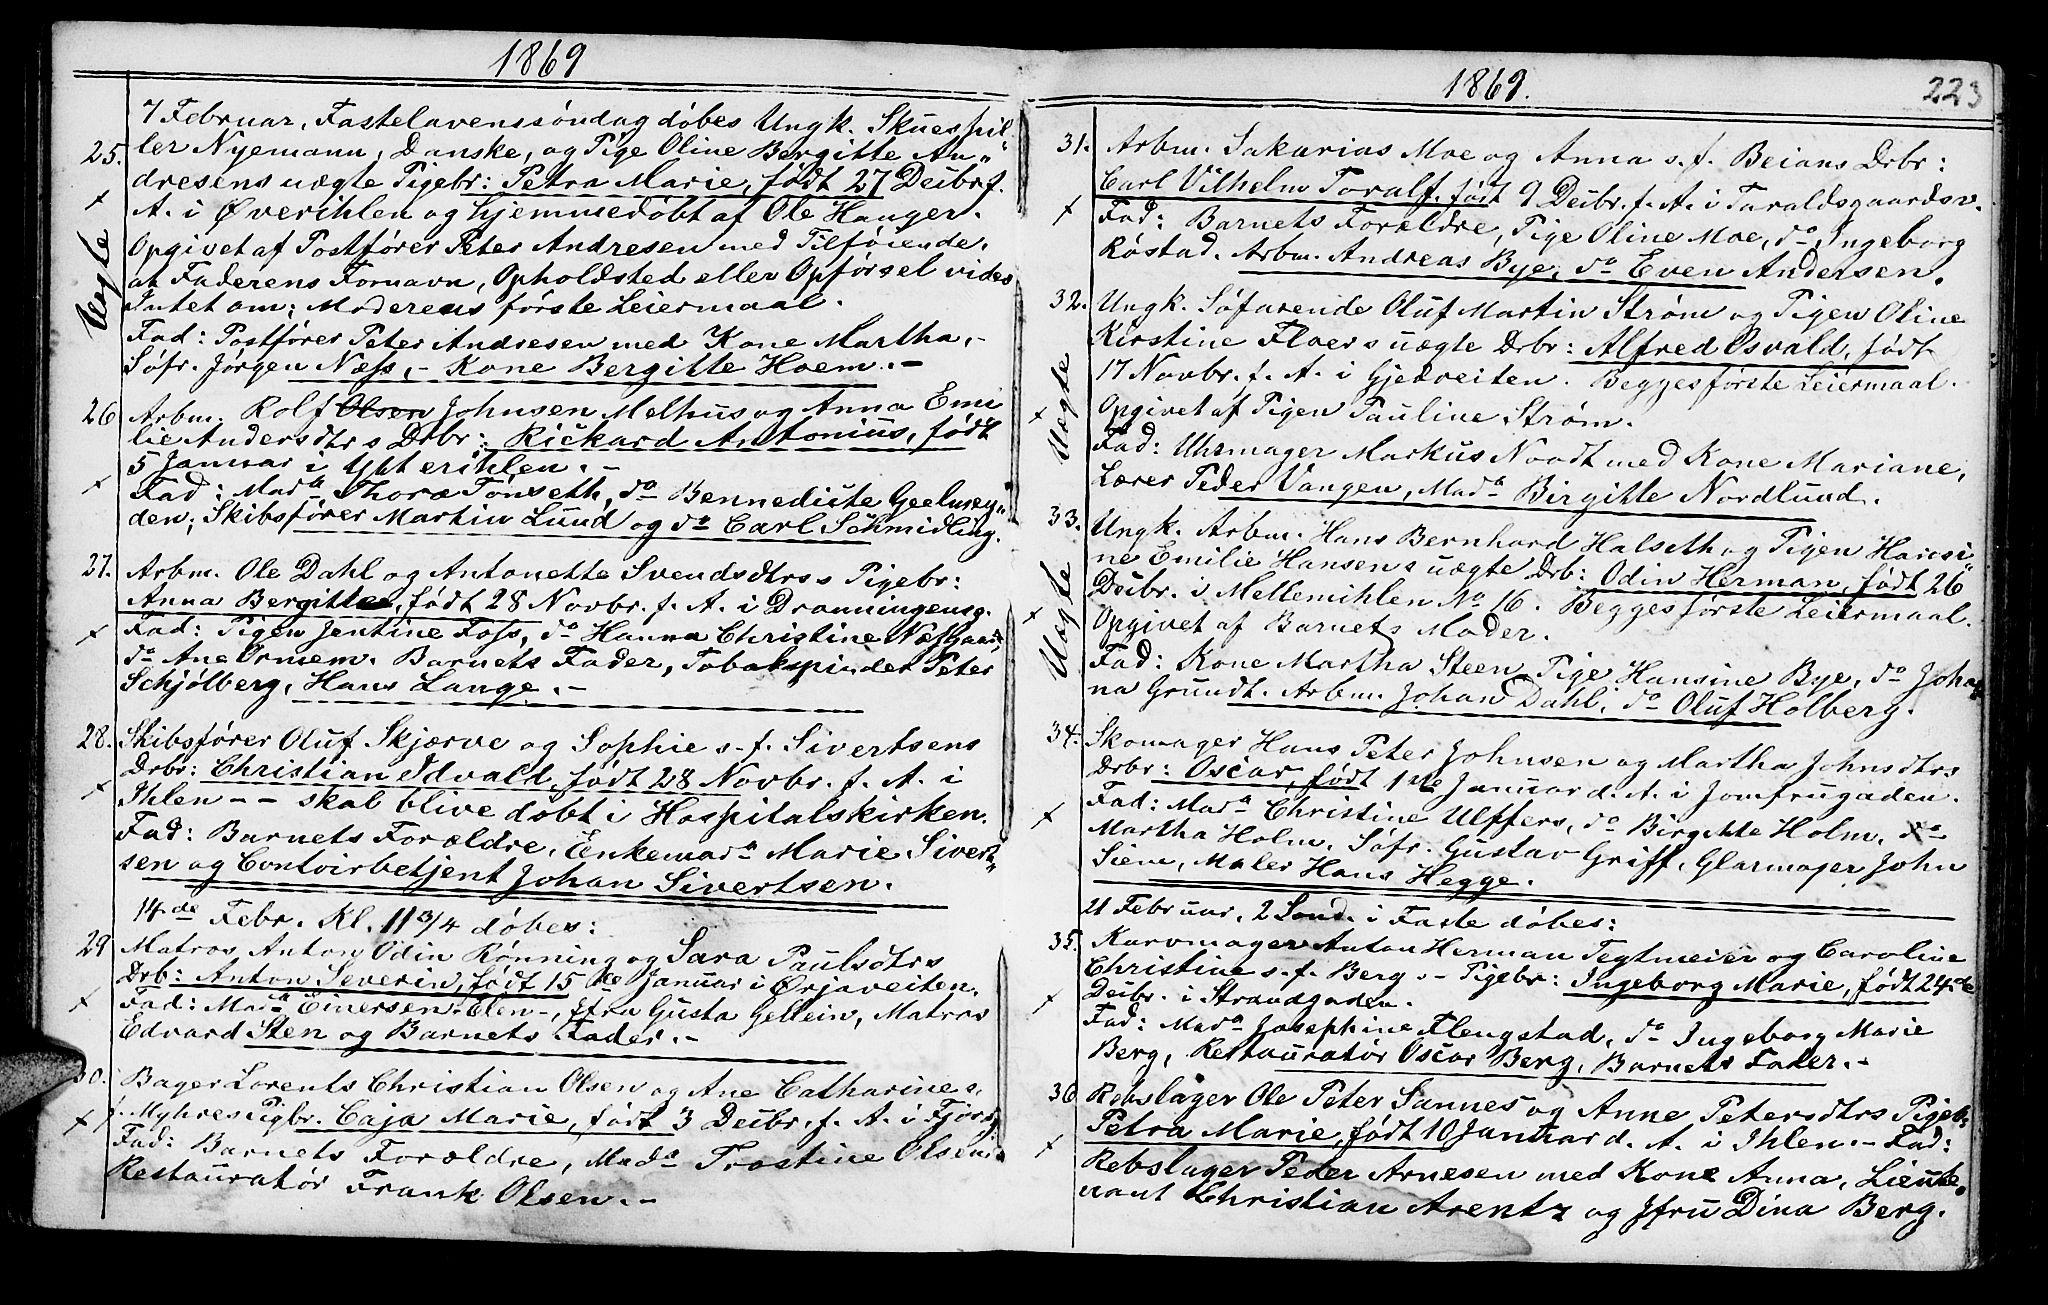 1869
7 Februar, Fastelavenssöndag döbes Ungk. Skuespil-
25. ler Nyemann, Danske, og Pige Oline Bergitte An-
dresens uægte Pigebr: Petra Marie, født 27 Deibr. f.
A. i Øverihlen og hjemmedöbt af Ole Hauger.
Opgivet af Postförer Peter Andresen med Tilföiende.
at Faderens Fornavn, Opholdsted eller Opførsel vides
Uægte
Intet om; Moderens förste Leiermaal.
Fad: Postförer Peter Andresen med Kone Martha, -
Söfr. Jørgen Næss, - Kone Bergitte Hoem. -
26 Arbm. Rolf Olsen Johnsen Melhus og Anna Emi
lie Andersdtrs Drbr: Rickard Antonius, født
5 Januar i Ytterihlen. -
Fad: Mada Thora Tönseth, do Bennedicte Geelmey-
den; Skibsförer Martin Lund og do Carl Schmidling.
27. Arbm. Ole Dahl og Antonette Svendsdtrs Pigebr:
Anna Bergitte, født 28 Novbr. f. A. i Dronningensg.
Fad: Pigen Jentine Foss, do Hanna Christine Næsgaard,
do Ane Ormem. Barnets Fader, Tobakspinder Peter
Schjölberg, Hans Lange. -
28. Skibsfører Oluf Skjærve og Sophie s. f. Sivertsens
Drbr: Christian Edvald, født 28 Novbr. f. A. i
Ihlen - - skal blive døbt i Hospitalskirken.
Fad: Barnets Forældre, Enkemada Marie Sivert-
sen og Contoirbetjent Johan Sivertsen.
14.de Febr. Kl. 11 3/4 döbes:
29 Matros Anton Odin Rönning og Sara Paulsdtrs
Drb: Anton Severin, født 15de Januar i Ørjaveiten.
Fad: Mada Einersen - Elen -, Jfru Gusta Gellein, Matros
Edvard Sten og Barnets Fader. -
30. Bager Lorents Christian Olsen og Ane Catharine s.
f. Myhres Pigbr. Caja Marie, født 3 Deibr. f. A. i Fjordg.
Fad: Barnets Forældre, Mada Trostine Olsen,
Restauratör Frank Olsen. -
1869.
223
31. Arbm. Sakarias Moe og Anna s. f. Beians Drbr:
Carl Vilhelm Toralf, født 9 Deibr. f. A. i Taraldsgaardsv.
Fad: Barnets Forældre, Pige Oline Moe, do Ingeborg
Röstad. Arbm. Andreas Bye, do Even Andersen.
32. Ungk. Söfarende Oluf Martin Strøm og Pigen Oline
Kirstine Floers uægte Drbr: Alfred Osvald, født
17 Novbr. f. A. i Gjetveiten. Begges første Leiermaal.
Uægte
Opgivet af Pigen Pauline Strøm.
Fad: Uhrmager Markus Nordt med Kone Mariane,
Lærer Peder Vangen, Mada Birgitte Nordlund.
33. Ungk. Arbm. Hans Bernhard Halseth og Pigen Hansi-
ne Emilie Hansens uægte Drb: Odin Herman, født 26
Deibr. i Mellemihlen No 16. Begges första Leiermaal.
Uægte
Opgivet af Barnets Moder.
Fad: Kone Martha Steen, Pige Hansine Bye, do Johan
na Grundt. Arbm. Johan Dahl, do Oluf Holberg.
34. Skomager Hans Peter Johnsen og Martha Johnsdtrs
Drbr: Oscar, født 1ste Januar d. A. i Jomfrugaden.
Fad: Mada Christine Ulffers, do Birgitte Holm, do
Martha Holm, Söfr. Gustav Griff, Glarmager John
Siene, Maler Hans Hegge.
21 Februar, 2 Sönd. i Faste döbes:
35. Kurvmager Anton Herman Tegtmeier og Caroline
Christine s. f. Berg s - Pigebr: Ingeborg Marie, født 24de
Deibr. i Strandgaden.
Fad: Mada Josephine Flengstad, do Ingeborg Marie
Berg, Restauratör Oscar Berg, Barnets Fader. -
36 Rebslager Ole Peter Sannes og Anne Petersdtrs Pigeb:
Petra Marie, født 10 Januar d. A. i Ihlen. - Fad:
Rebslager Peder Arnesen med Kone Anna, Lieute-
nant Christian Arentz og Jfru Dina Berg.